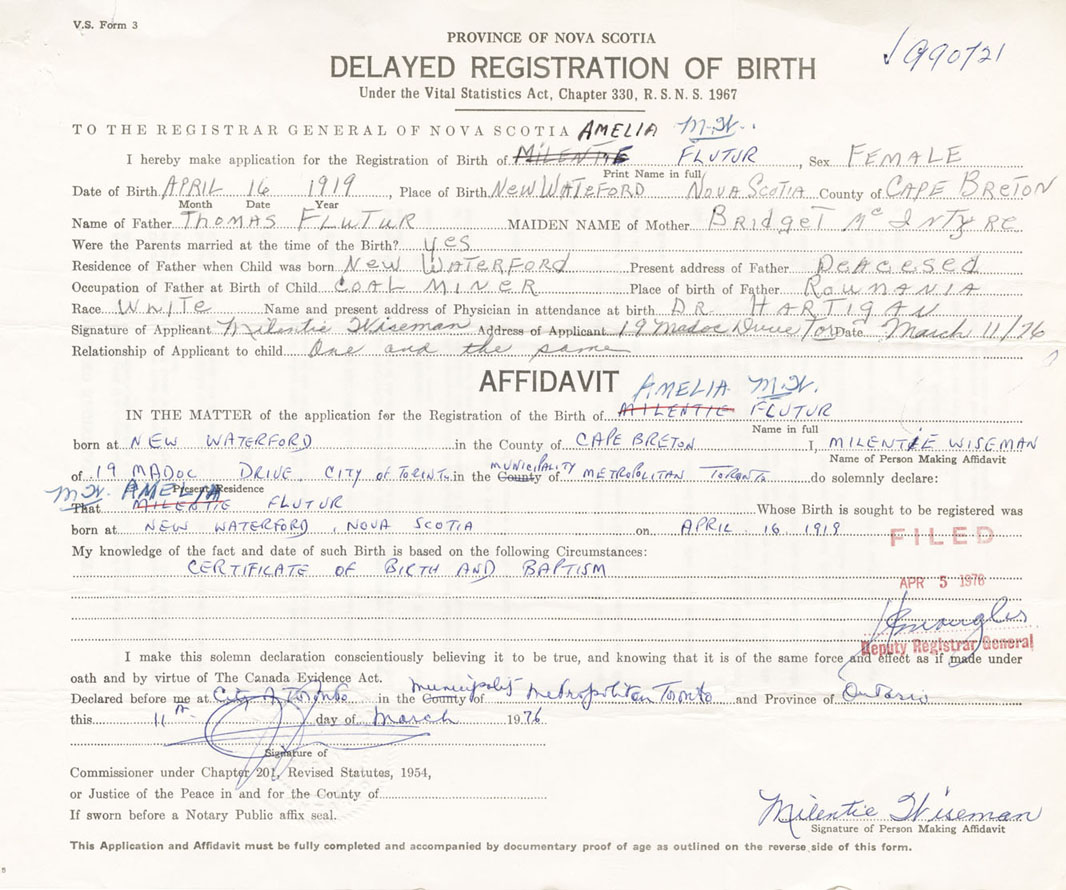 V.S. Form 3
PROVINCE OF NOVA SCOTIA
990721
DELAYED REGISTRATION OF BIRTH
Under the Vital Statistics Act, Chapter 330, R.S.N.S. 1967
TO THE REGISTRAR GENERAL OF NOVA SCOTIA AMELIA M.W.
I hereby make application for the Registration of Birth of MILENTIE FLUTUR, Sex FEMALE
Print Name in full
Date of Birth APRIL 16 1919, Place of Birth NEW WATERFORD NOVA SCOTIA County of CAPE BRETON
Month Date Year
Name of Father THOMAS FLUTUR MAIDEN NAME of Mother BRIDGET Mc INTYRE
Were the Parents married at the time of the Birth? yes
Residence of Father when Child was born NEW WATERFORD Present address of Father DEACESED
Occupation of Father at Birth of Child COAL MINER Place of birth of Father ROUMANIA
Race WHITE Name and present address of Physician in attendance at birth DR HARTIGAN
Signature of Applicant Milentie Wiseman Address of Applicant 19 Madoc Drive Tor Date March 11/76
Relationship of Applicant to child One and the same
AFFIDAVIT AMELIA M.W.
IN THE MATTER of the application for the Registration of Birth of MILENTIE FLUTUR
Name in full
born at NEW WATERFORD in the County of CAPE BRETON I, MILENTIE WISEMAN
Name of Person Making Affidavit
of 19 MADOC DRIVE, CITY OF TORONTO in the County MUNICIPALITY of METROPOLITAN TORONTO do solemnly declare:
Present Residence
M.W. AMELIA
That MILENTIE FLUTUR Whose Birth is sought to be registered was
born at NEW WATERFORD, NOVA SCOTIA on APRIL 16, 1919
FILED
My knowledge of the fact and date of such Birth is based on the following Circumstances:
CERTIFICATE OF BIRTH AND BAPTISM
APR 5 1976
Deputy Registrar General
I make this solemn declaration conscientiously believing it to be true, and knowing that it is of the same force and effect as if made under
oath and by virtue of The Canada Evidence Act.
Declared before me at City of Toronto in the County of Municipality Metropolitan Toronto and Province of Ontario
this 11th day of March 1976
Signature of
Commissioner under Chapter 201, Revised Statutes, 1954,
or Justice of the Peace in and for the County of
If sworn before a Notary Public affix seal.
Milentie Wiseman
Signature of Person Making Affidavit
This Application and Affidavit must be fully completed and accompanied by documentary proof of age as outlined on the reverse side of this form.